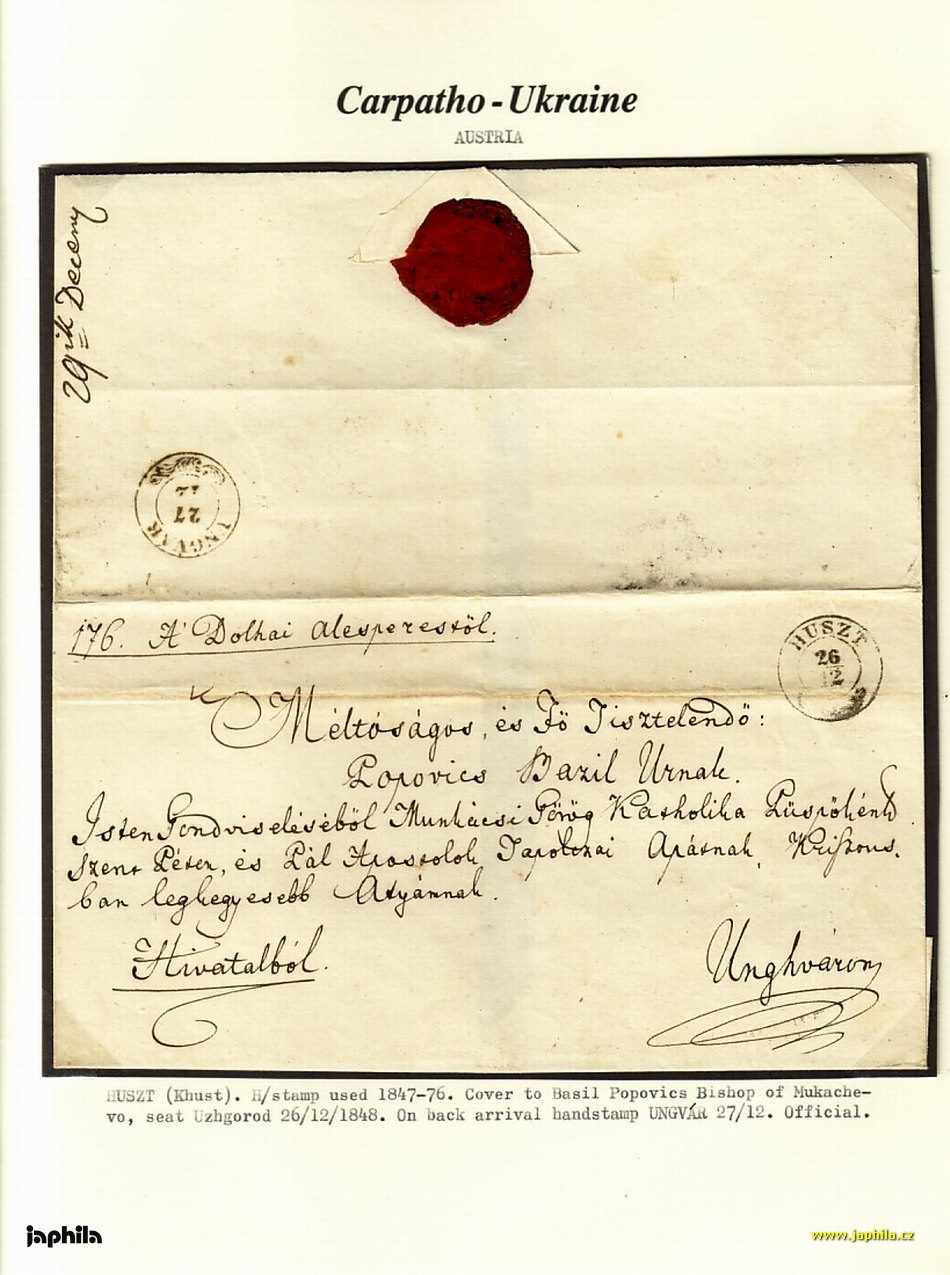 Carpatho-Ukraine
AUSTRIA
29ik Decem
UNGVÁR
27
12
176. A' Dolhai alesperestöl.
HUSZT
26
12
Méltóságos, és Fö Tisztelendö:
Popovics Bazil Urnak.
Isten Gondviseléséböl Munkácsi Görög Katholika Püspökének
Szent Péter, és Pál Apostolok Tapolczai Apátnak, Krisztus-
ban leghegyesebb Atyámnak.
Hivatalból.
Unghváron
HUSZT (Khust). H/stamp used 1847-76. Cover to Basil Popovics Bishop of Mukache-
vo, seat Uzhgorod 26/12/1848. On back arrival handstamp UNGVÁR 27/12. Official.
japhila
www.japhila.cz